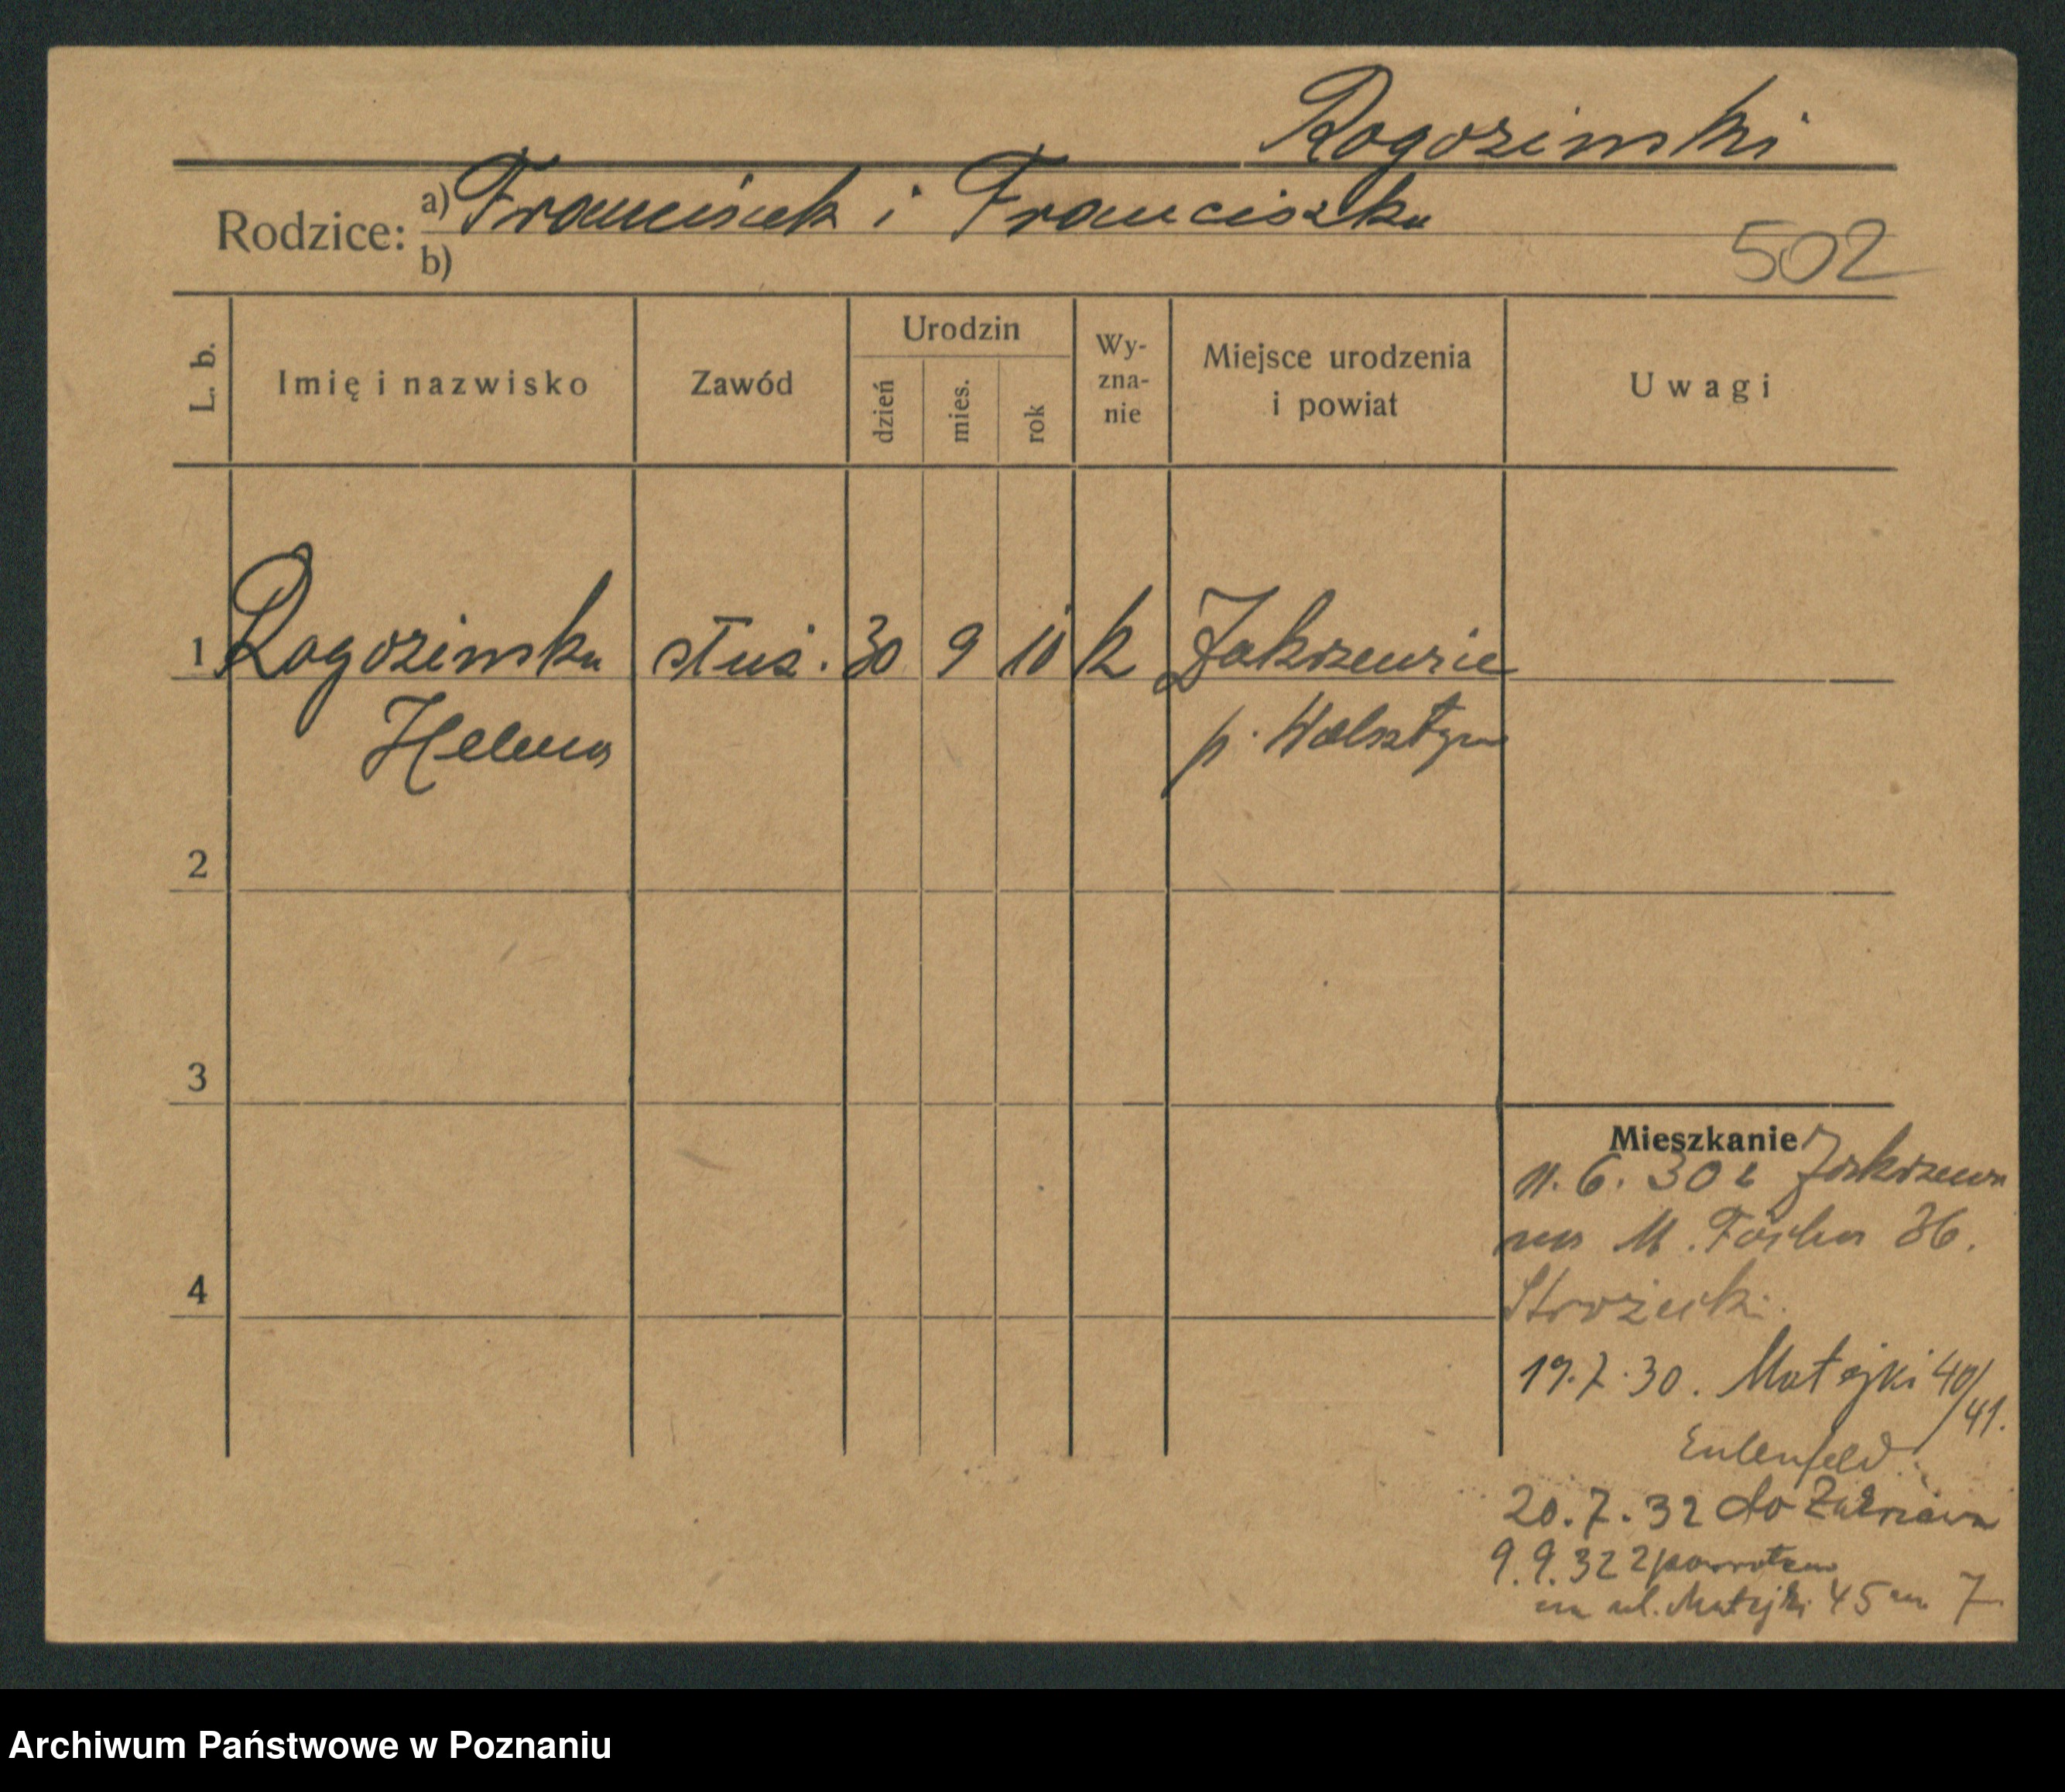 Rogozinski
Rodzice: a) Franciszek i Franciszka
b)
502
L. b.
Imię i nazwisko
Zawód
Urodzin
dzień
mies.
rok
Wy-
zna-
nie
Miejsce urodzenia
i powiat
Uwagi
1 Rogozinska służ. 30 9 10 k Zakrzewie
Helena p. Wolsztyn
2
3
4
Mieszkanie
11.6.30 z Zakrzewa
na M. Focha 36.
19.7.30. Matejki 40/41.
Eulenfeld
20.7.32 do Zakrzewa
9.9.32 zpowrotem
na ul. Matejki 45 m 7
Archiwum Państwowe w Poznaniu